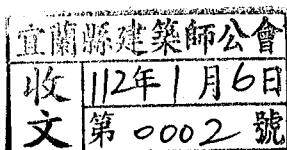 宜蘭縣建築師公會
收文
112年1月6日
第0002號